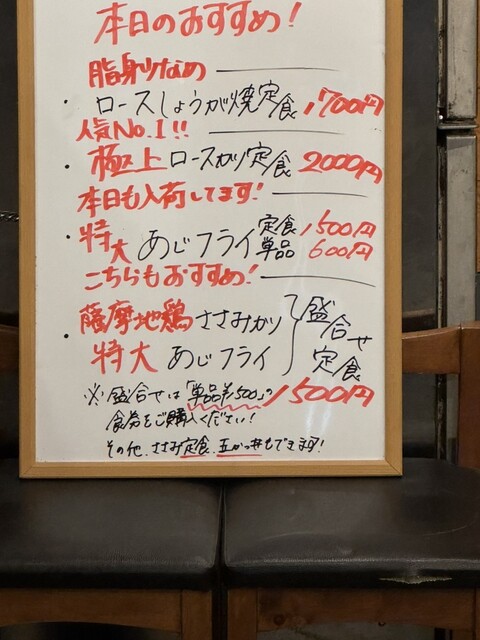 本日のおすすめ!
脂身少なめ
・ロースしょうが焼定食 1700円
人気No.1!!
・極上ロースカツ定食 2000円
本日も入荷してます!
・特大 あじフライ 定食 1500円
単品 600円
こちらもおすすめ!
・薩摩地鶏 ささみカツ
特大 あじフライ
盛合せ定食
1500円
※盛合せは「単品¥1500」の
食券をご購入ください!
その他、ささみ定食、玉かつ丼もできます!